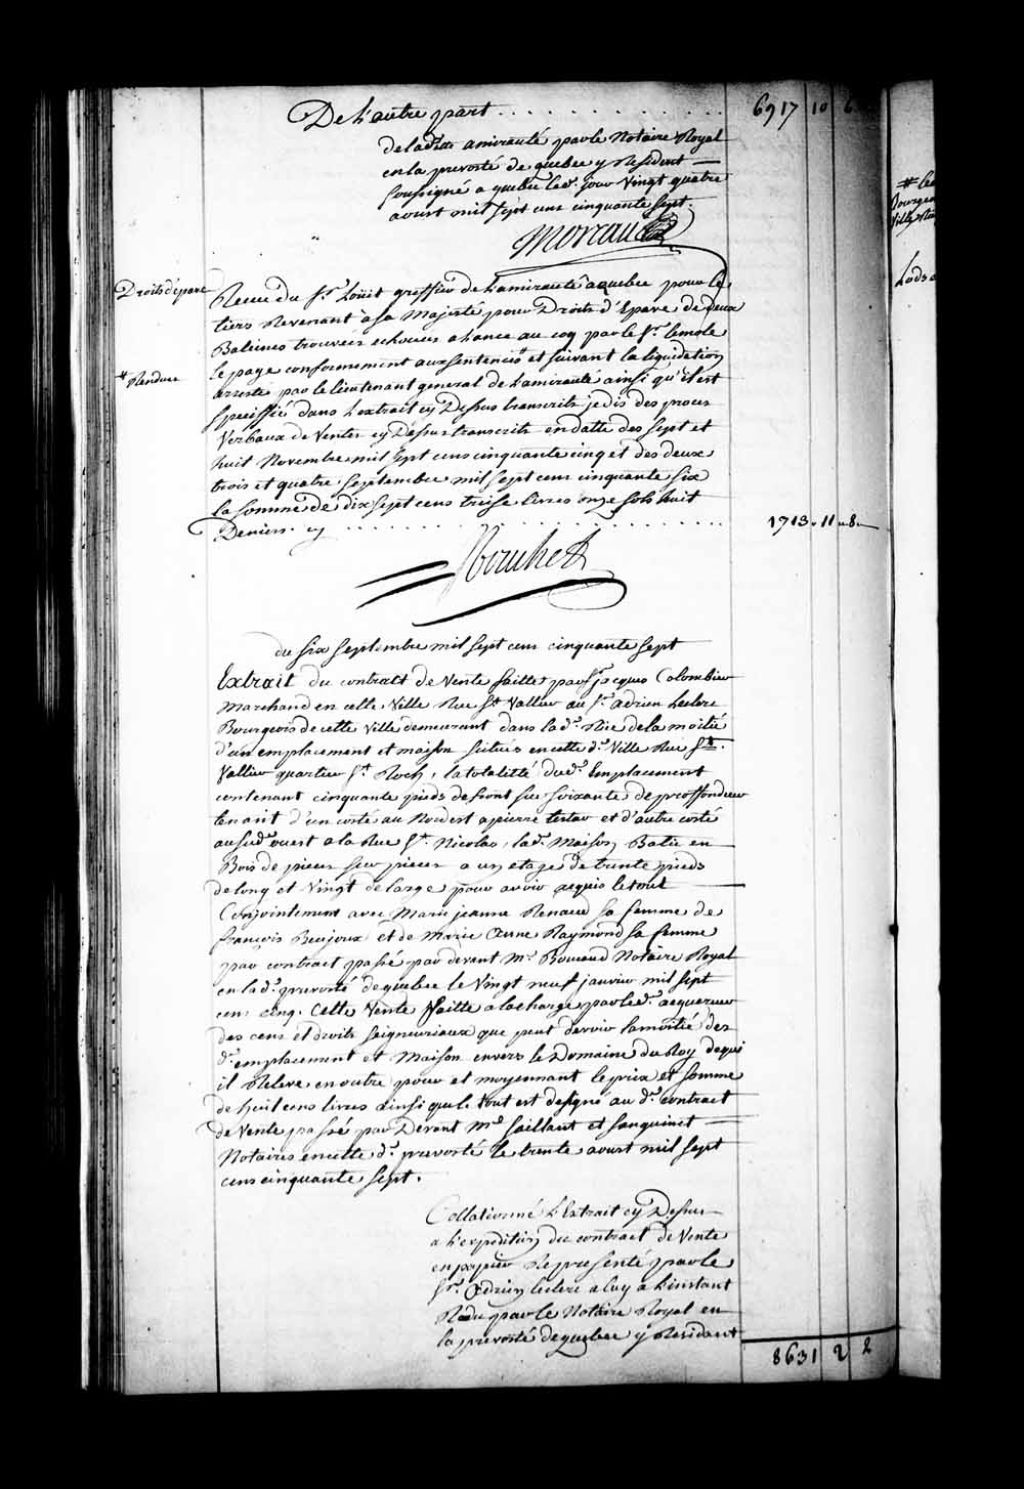 De L'autre part . . . . . . . . . . . . 6917 10 6
de lad.te amirauté par le Notaire Royal
en la prevosté de quebec y Resident —
soussigné a quebec led.t jour Vingt quatre
aoust mil sept cens cinquante sept.
Moreau
Droits d'épave
Receu du Sr. Loüet greffier de L'amirauté a quebec pour le
tiers Revenant a Sa Majesté pour Droits d'Epave de deux
Baleines trouvées echouées a Lance au coq par le Sr. Lemole
* Rendue
le page conformement aux sentences * et suivant la liquidation
arresté par le lieutenant general de L'amirauté ainsi qu'il est
specifié dans L'extrait cy Dessus transcrits je dis des procès
Verbaux de Ventes cy Dessus transcrits en datte des sept et
huit Novembre mil sept cens cinquante cinq et des deux
trois et quatre septembre mil sept cens cinquante six
la somme de dix sept cens treise livres onze sols huit
Deniers cy . . . . . . . . . . . . 1713 " 11 " 8 "
du six septembre mil sept cens cinquante sept
Extrait du contratt de Vente faitte par Sr jacques Colombier
Marchand en cette Ville Rue St Vallier au Sr. adrien Leclerc
Bourgeois de cette Ville demeurant dans lad.e Rüe de la moitié
d'un emplacement et maison scitués en cette d.e Ville Rue St.
Vallier quartier St. Roch, la totalitté dud.t Emplacement
contenant cinquante pieds de front sur soixante de proffondeur
tenant d'un costé au Nordest a pierre tertav et d'autre costé
au sud ouest a la Rue St. Nicolas, lad.e Maison Batie en —
Bois de pieces sur pieces a un etage de trente pieds
de long et Vingt de large pour avoir acquis le tout —
Conjointement avec Marie jeanne Renaud sa femme de
françois Beujoux et de Marie Anne Raymond sa femme
par contract passé par devant Me. Notaire Royal
en lad.e prevosté de quebec le Vingt neuf janvier mil sept
cens cinq. Cette Vente faitte a la charge par led.t acquereur
des cens et droits seigneuriaux que peut devoir la moitié des
d.t emplacement et Maison envers le Domaine du Roy de qui
il Releve, en outre pour et moyennant le prix et somme
de huit cens livres ainsi que le tout est designé au d.t contract
de Vente passé par Devant Mes Saillant et Sanguinet —
Notaires en cette d.e prevosté le trente aoust mil sept
cens cinquante sept.
Collationné L'Extrait cy Dessus —
a L'expedition du contract de Vente
en papier Representé par le
Sr. Adrien leclerc a luy a L'instant
Rendu par le Notaire Royal en —
la prevosté de quebec y Resident
8631 2 2